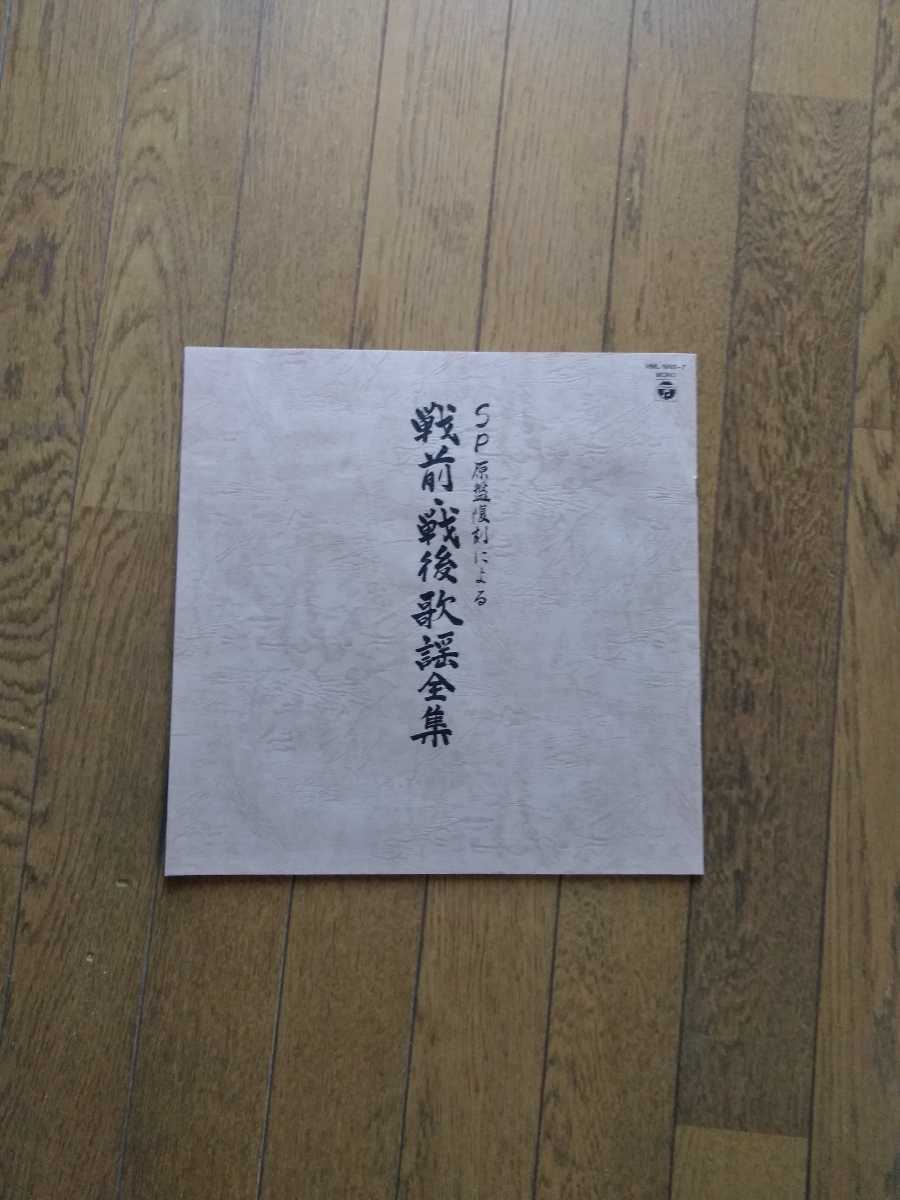 SP原盤復刻による
戦前・戦後歌謡全集
MONO